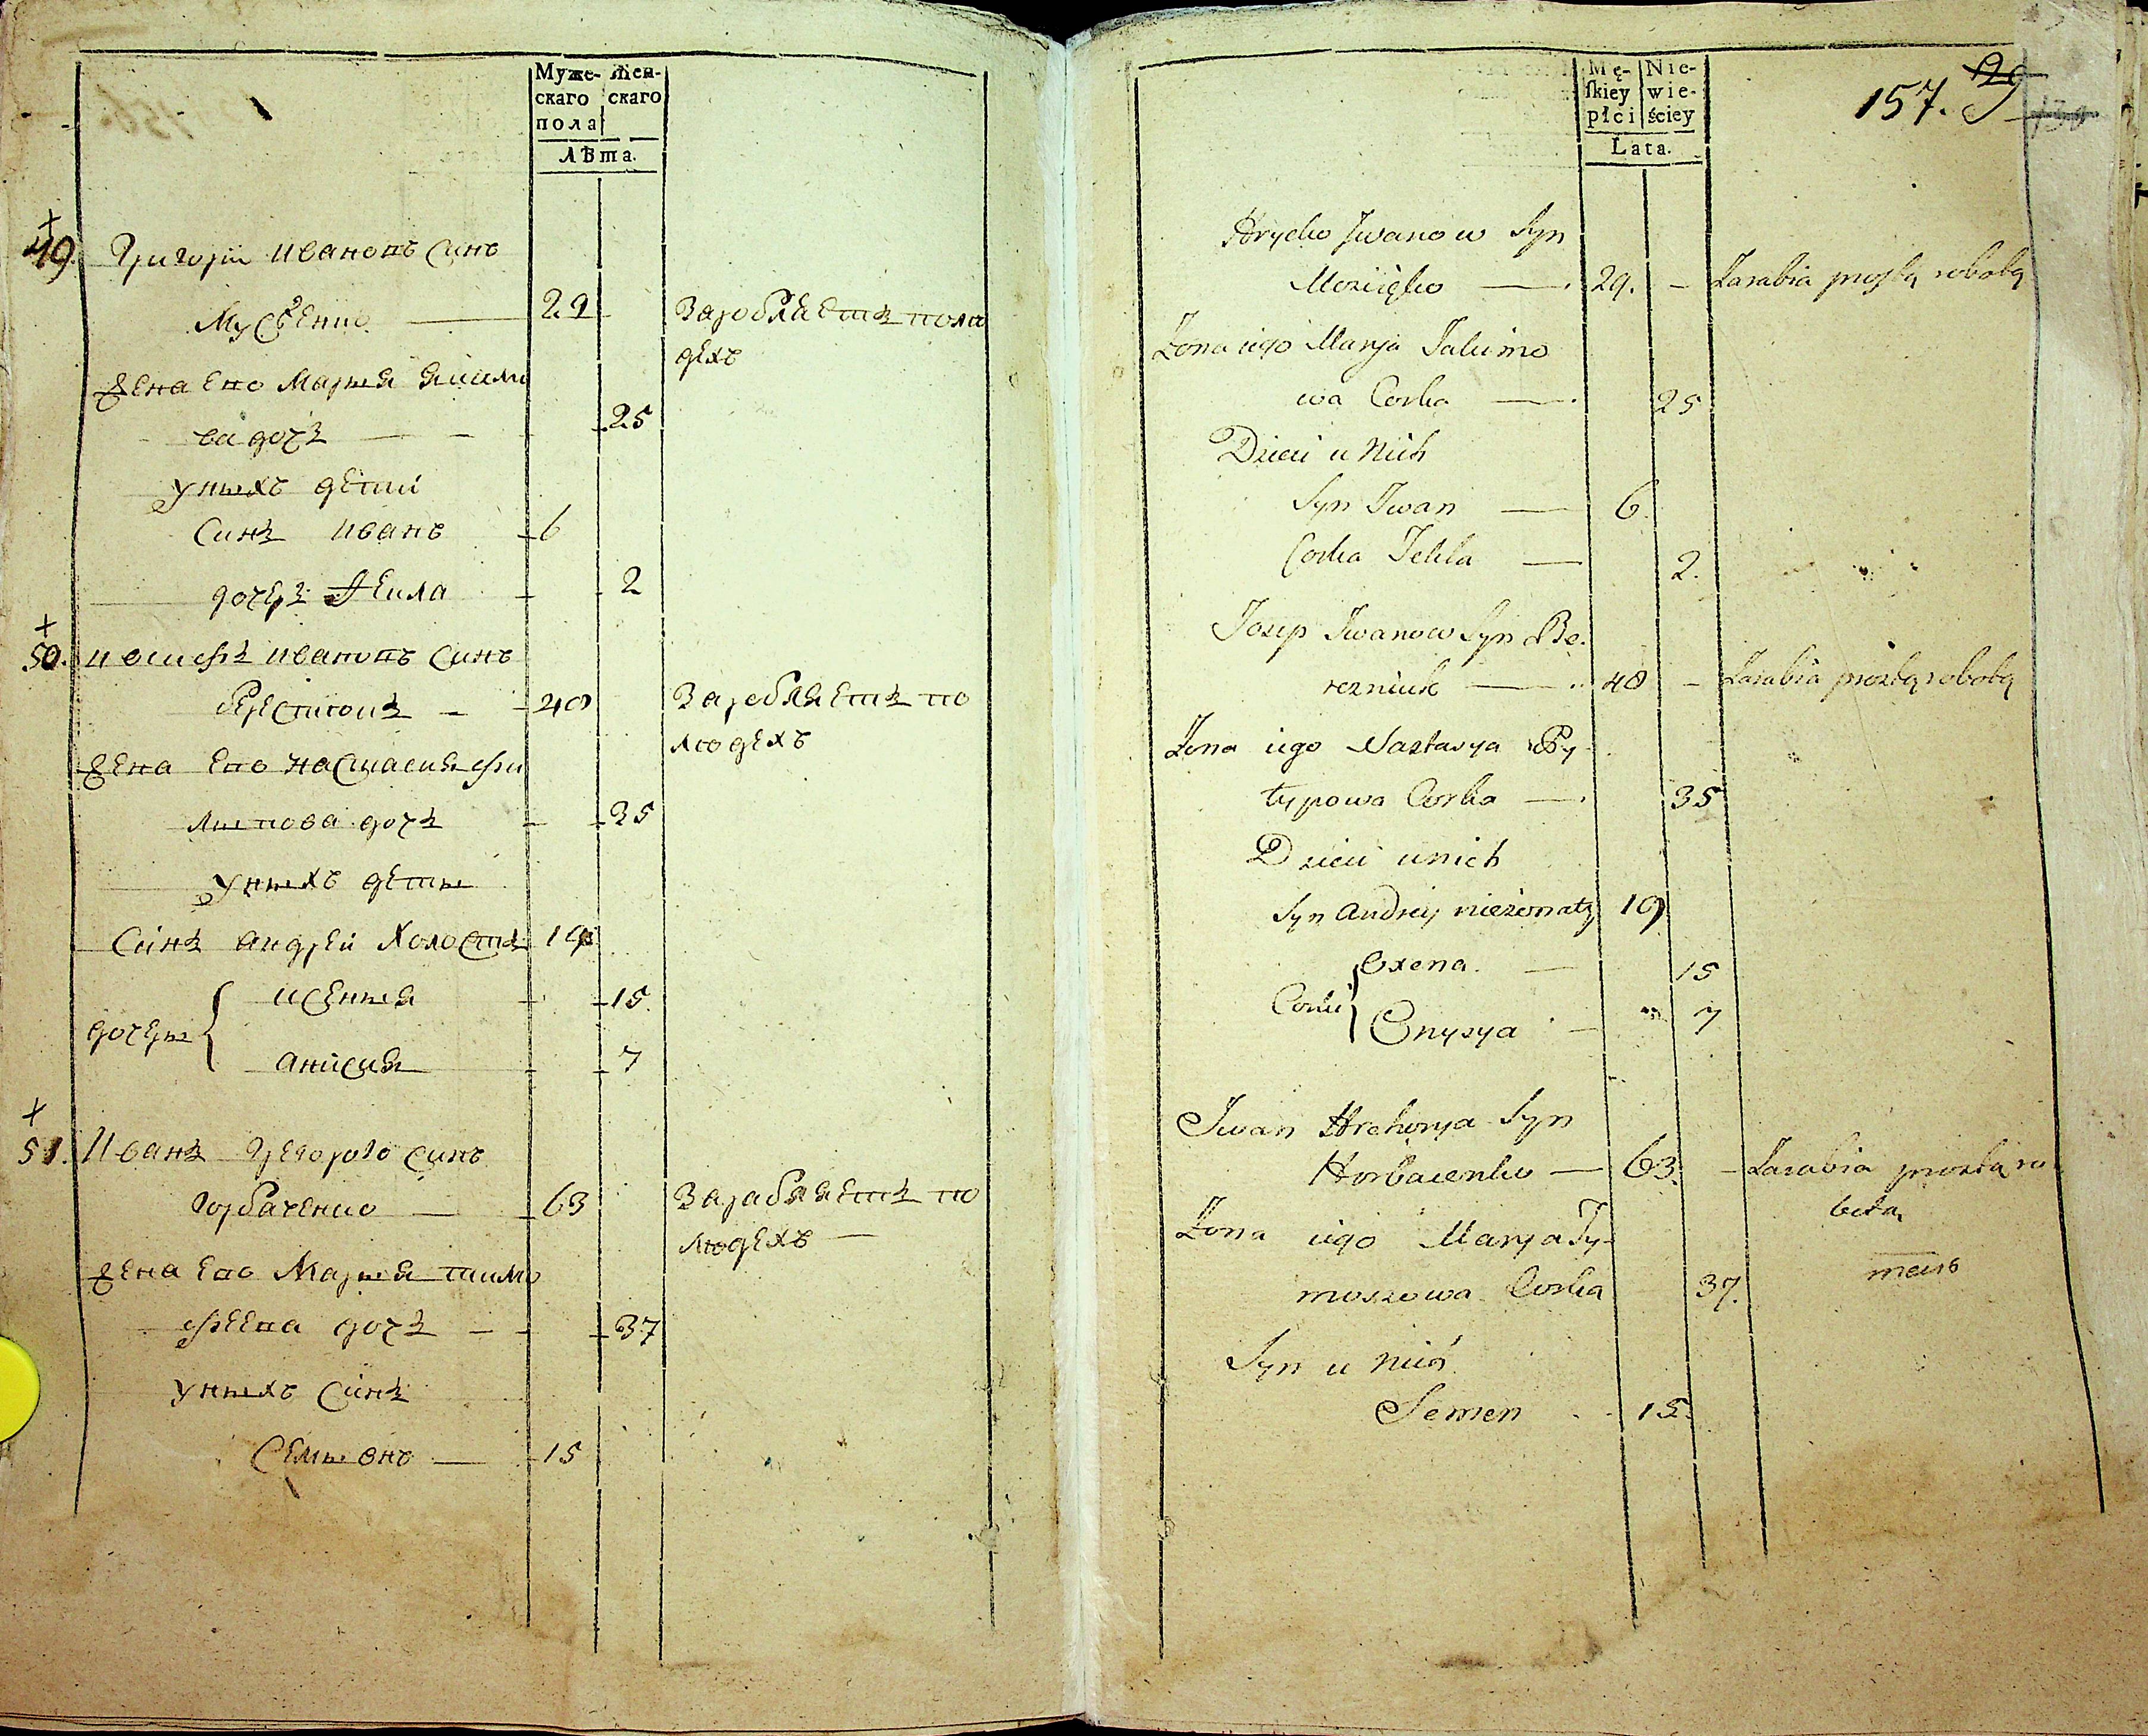 Муже-
скаго
пола
Жен-
скаго
Лѣта.
49.
Григорій Ивановъ синъ
29
Заробляетъ пола
дехъ
Жена его Марья Якимо
ва дочъ
25
унихъ дети
синъ Иванъ 6
2
50. Иосифъ Ивановъ синъ
40 Заробляетъ по
людехъ
Жена его Настасия Фи
липова дочъ 35
унихъ дети
Синъ Андрей холостъ 19
дочери
15
Анисия 7
51. Иванъ Грегорого синъ
Горбаченко — 63 Зарабляетъ по
людехъ —
Жена его Марья Тимо
феева дочъ — 37
унихъ синъ
Семионъ — 15
Mę-
ſkiey
płci
Nie-
wie-
ściey
Lata.
157.
29
Hrycko Jwanow Syn
29. — Zarabia prostą robotą
Zona iego Marya Jakimo
wa Corka — 25
Dzieci u Nich
Syn Jwan — 6.
Corka — 2.
Jozep Jwanow Syn Be-
rezniuk — 40 — Zarabia prostą robotą
Zona iego Nastasya Py-
lypowa Corka — 35
Dzieci u nich
Syn Andrey nieżonaty 19
Corki
Oxena. — 15
Onysya — 7
Jwan Hrehorya Syn
Horbacenko — 63. — Zarabia prostą ro-
botą
Zona iego Marya Ty-
moszowa Corka 37.
Syn u Nich
Semen 15.